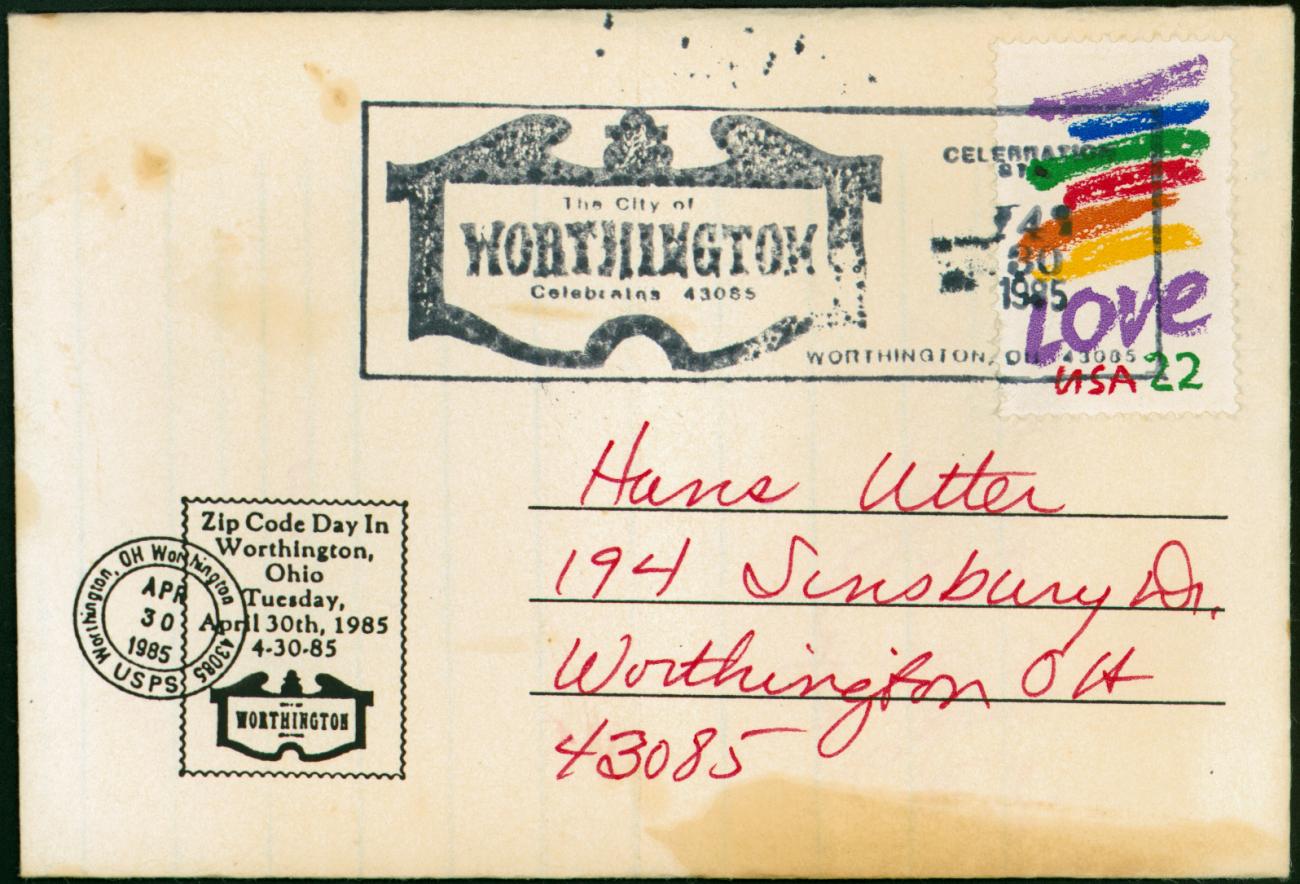 The City of
WORTHINGTON
Celebrates 43085
CELEBRATION
30
1985
WORTHINGTON, OH 43085
LOVE
USA 22
Hans Utter
194 Sinsbury Dr.
Worthington OH
43085
Zip Code Day In
Worthington,
Ohio
Tuesday,
April 30th, 1985
4-30-85
WORTHINGTON
Worthington, OH Worthington 43085
APR
30
1985
USPS